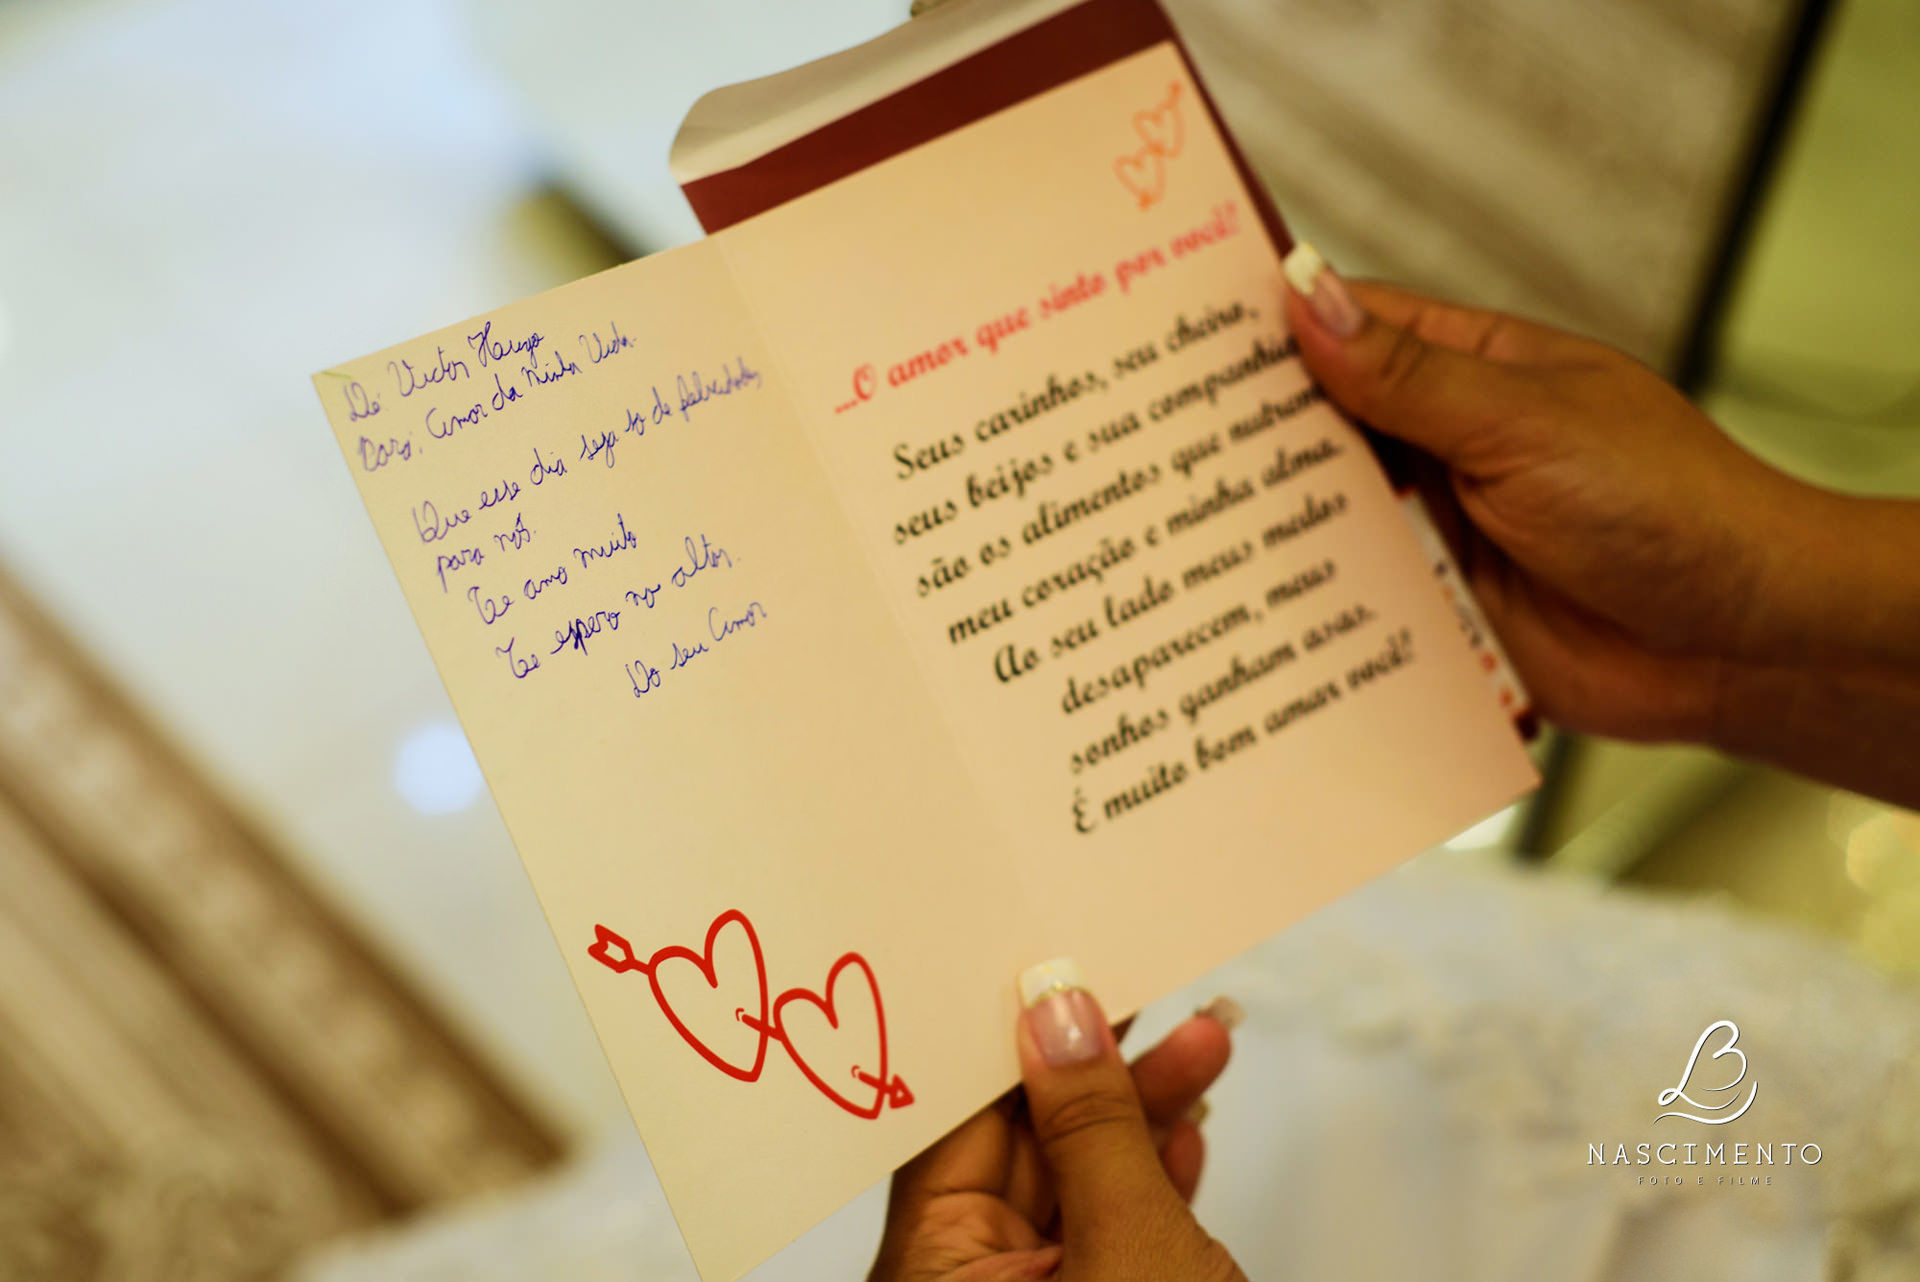 De: Victor Hugo
Para: Amor da minha Vida.
Que esse dia seja só de felicidades
para nós.
Te amo muito
Te espero no altar.
Do seu Amor
...O amor que sinto por você!
Seus carinhos, seu cheiro,
seus beijos e sua companhia
são os alimentos que nutrem
meu coração e minha alma.
Ao seu lado meus medos
desaparecem, meus
sonhos ganham asas.
É muito bom amar você!
NASCIMENTO
FOTO E FILME